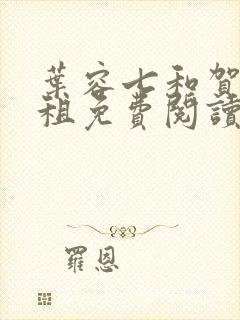 葉容七和賀
祖免費閱讀
羅恩